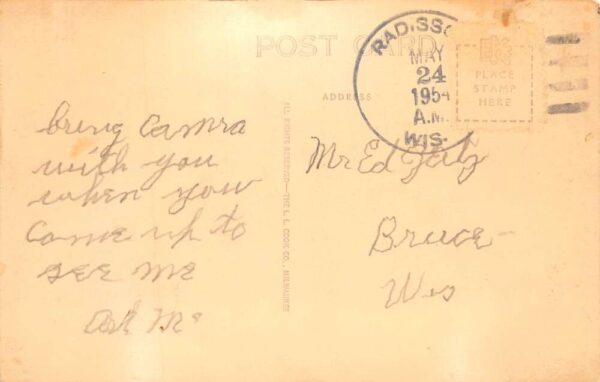 POST CARD
RADISSO
MAY
24
1954
A.M.
WIS.
PLACE
STAMP
HERE
ADDRESS
bring Camra
with you
when you
Come up to
see me
ALL RIGHTS RESERVED—THE L. L. COOK CO., MILWAUKEE
Mr Ed
Bruce
Wis